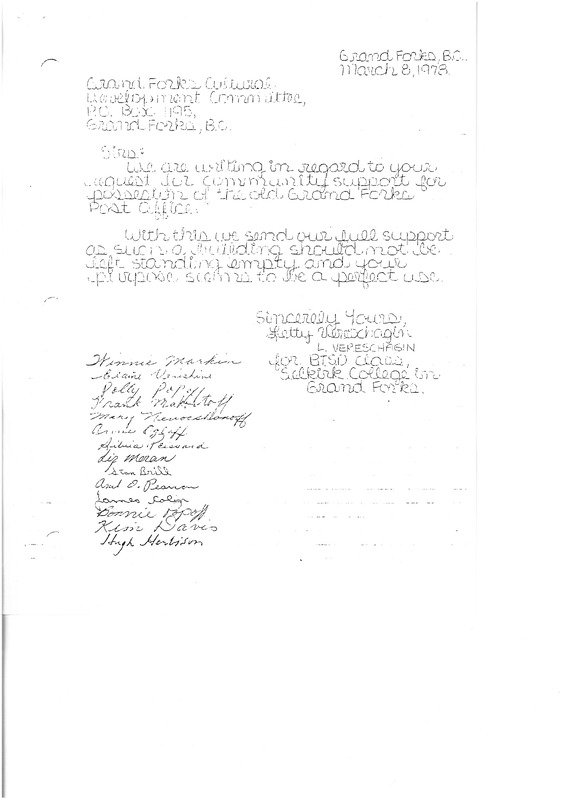 Grand Forks, B.C.
March 8, 1978.
Grand Forks Cultural
Development Committee,
P.O. Box 1195,
Grand Forks, B.C.
Sirs:
We are writing in regard to your
request for community support for
possession of the old Grand Forks
Post Office.
With this we send our full support
as such a building should not be
left standing empty and your
purpose seems to be a perfect use.
Sincerely Yours,
Letty Vereschagin
L. VERESCHAGIN
for BTSD class,
Selkirk College in
Grand Forks.
Winnie Markin
Elaine Verishine
Polly Popoff
Frank
Mary
Annie
Silvia
Liz Moran
Stan Brill
Pearson
James
Bonnie Popoff
Kim Davis
Hugh Herbison